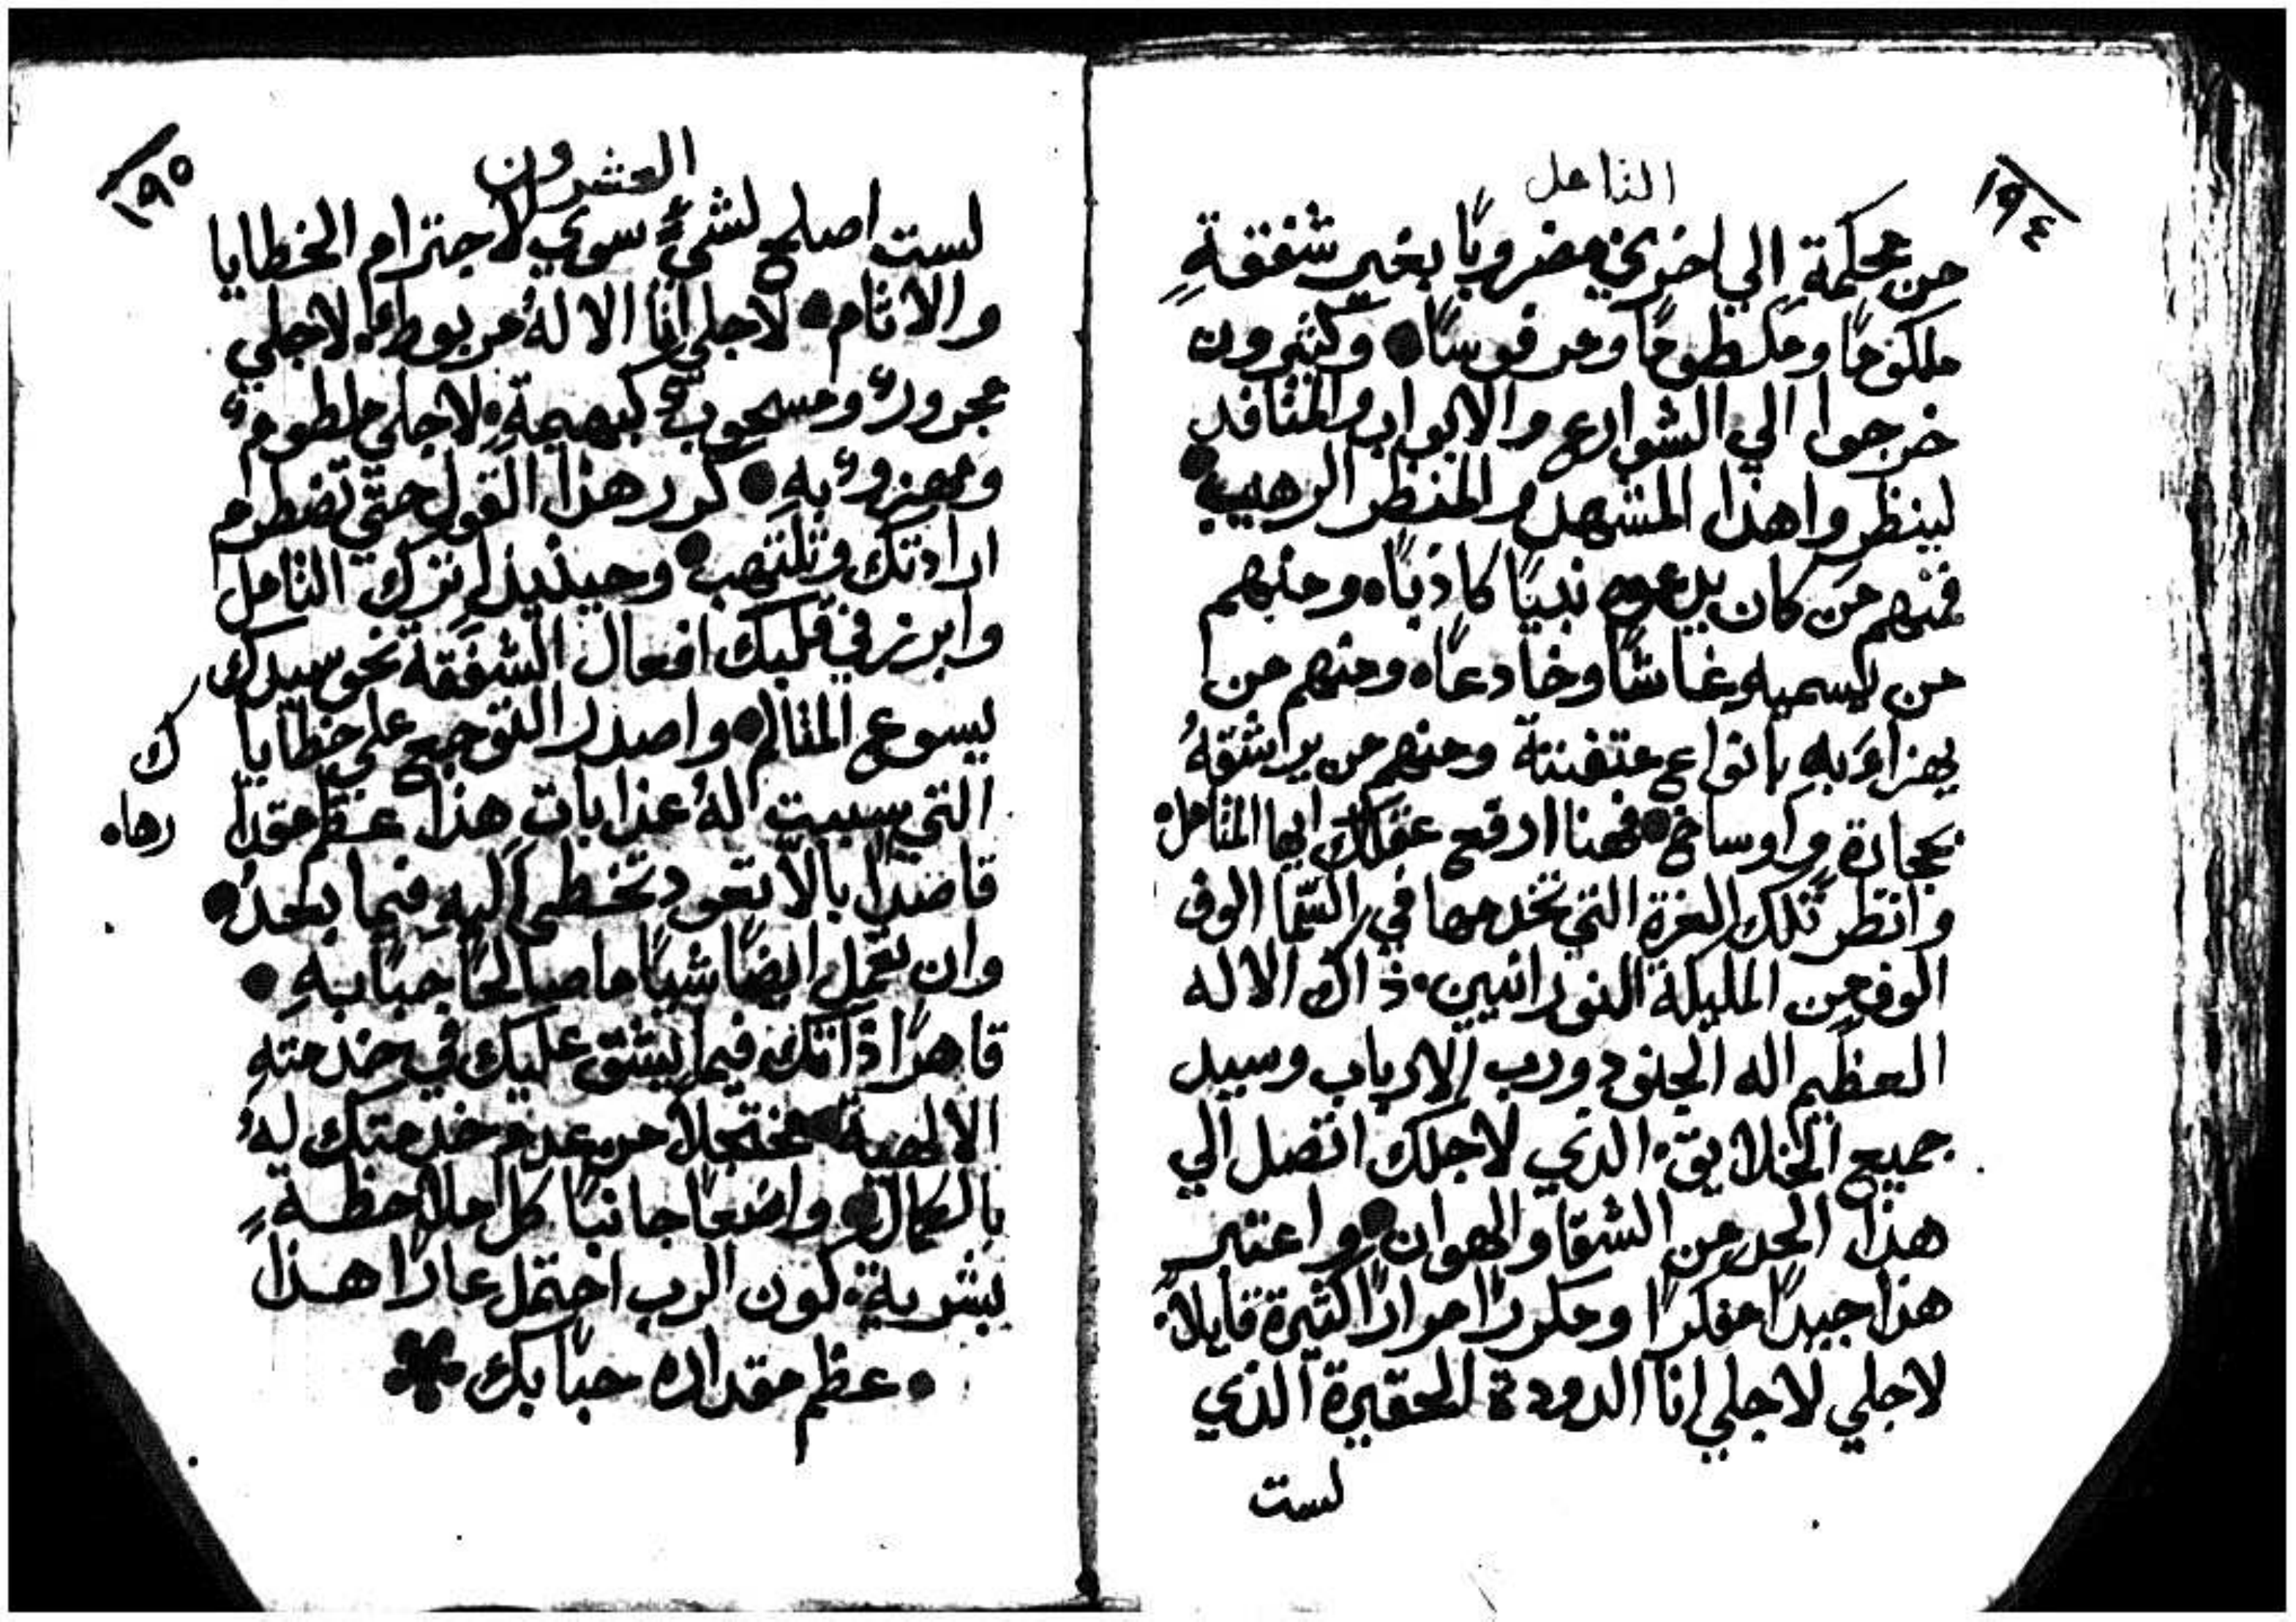 ١٩٤
التامل
من محكمة الي اخري مضروبًا بغير شفقةٍ
ملكومًا وملطومًا ومرفوسًا• وكثيرون
خرجوا الي الشوارع والابواب والمنافد
لينظروا هذا المشهد والمنظر الرهيب•
فمنهم مَن كان يدعوه نبيًا كاذبًا، ومنهم
من يسميه غاشًا وخادعًا، ومنهم من
يهزاوَبهِ بانواع متفننة ومنهم من يراشقهُ
بحجارة واوساخ• فهنا ارفع عقلك ايها المتامل،
وانظر تلك العزة التي تخدمها في السّما الوف
الوف من المليكة النورانيين، ذاك الاله
العظيم اله الجنود ورب الارباب وسيد
جميع الخلايق، الذي لاجلك اتصل الي
هذا الحد من الشقا والهوان• واعتبر
هذا جيدًا مفكرًا ومكررًا مرارًا كثيرة قايلاً،
لاجلي لاجلي انا الدودة الحقيرة الذي
لست
١٩٥
العشرون
لست اصلح لشيءٍ سوي لاجترام الخطايا
والاثام• لاجلي انا الالهُ مربوطٌ، لاجلي
مجرورٌ ومسحوبٌ كبهيمةٍ، لاجلي ملطومٌ
ومهزوءٌ بهِ• كرر هذا القول حتّي تضطرم
ارادتك وتلتهب• وحينيذٍ اترك التامل
وابرز في قلبك افعال الشفقة نحو سيدك
يسوع المتالم• واصدر التوجع علي خطايا ك
التي سببت لهُ عذابات هذا عظم مقدا رها،
قاصدًا بالاّ تعود تخطي اليهِ فيما بعدُ•
وان تعمل ايضًا شيًا ما صالحًا حبًا بهِ•
قاهرًا ذاتك فيما يشق عليك في خدمتهِ
الالهية• مختجلاً من عدم خدمتك لهُ
بالكمال• واضعًا جانبًا كل ملاحظةٍ
بشرية، كون الرب احتمل عارًا هذا
• عظم مقداره حبًا بك